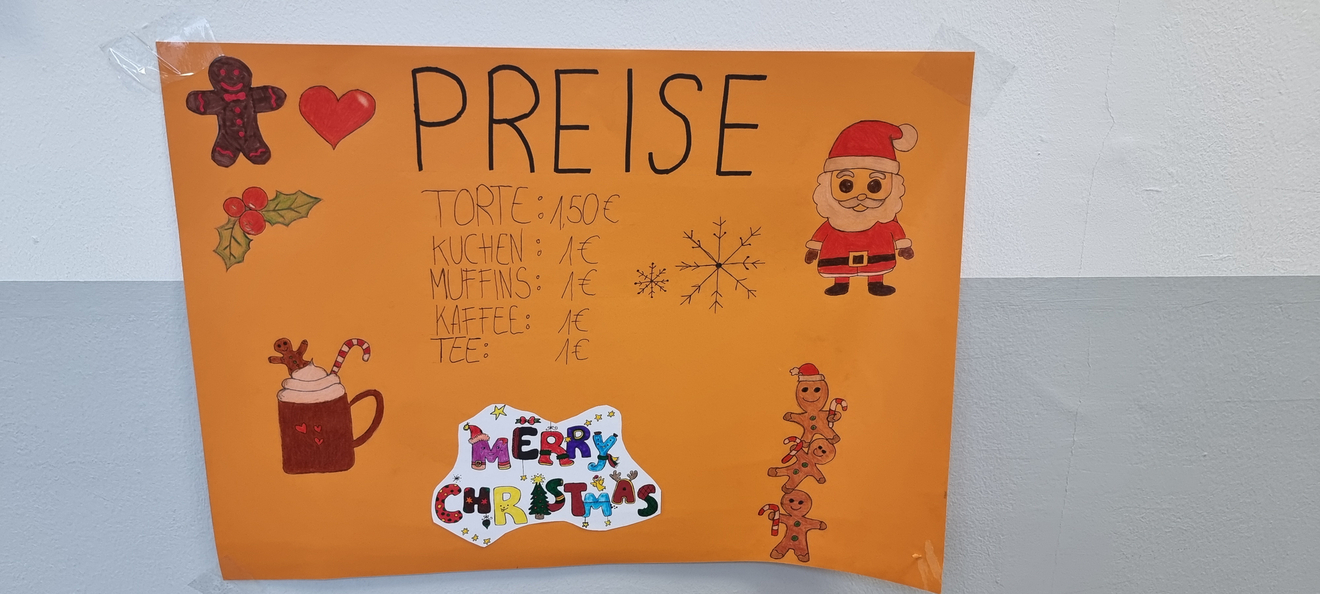 PREISE
TORTE: 1,50€
KUCHEN: 1€
MUFFINS: 1€
KAFFEE: 1€
TEE: 1€
MERRY
CHRISTMAS